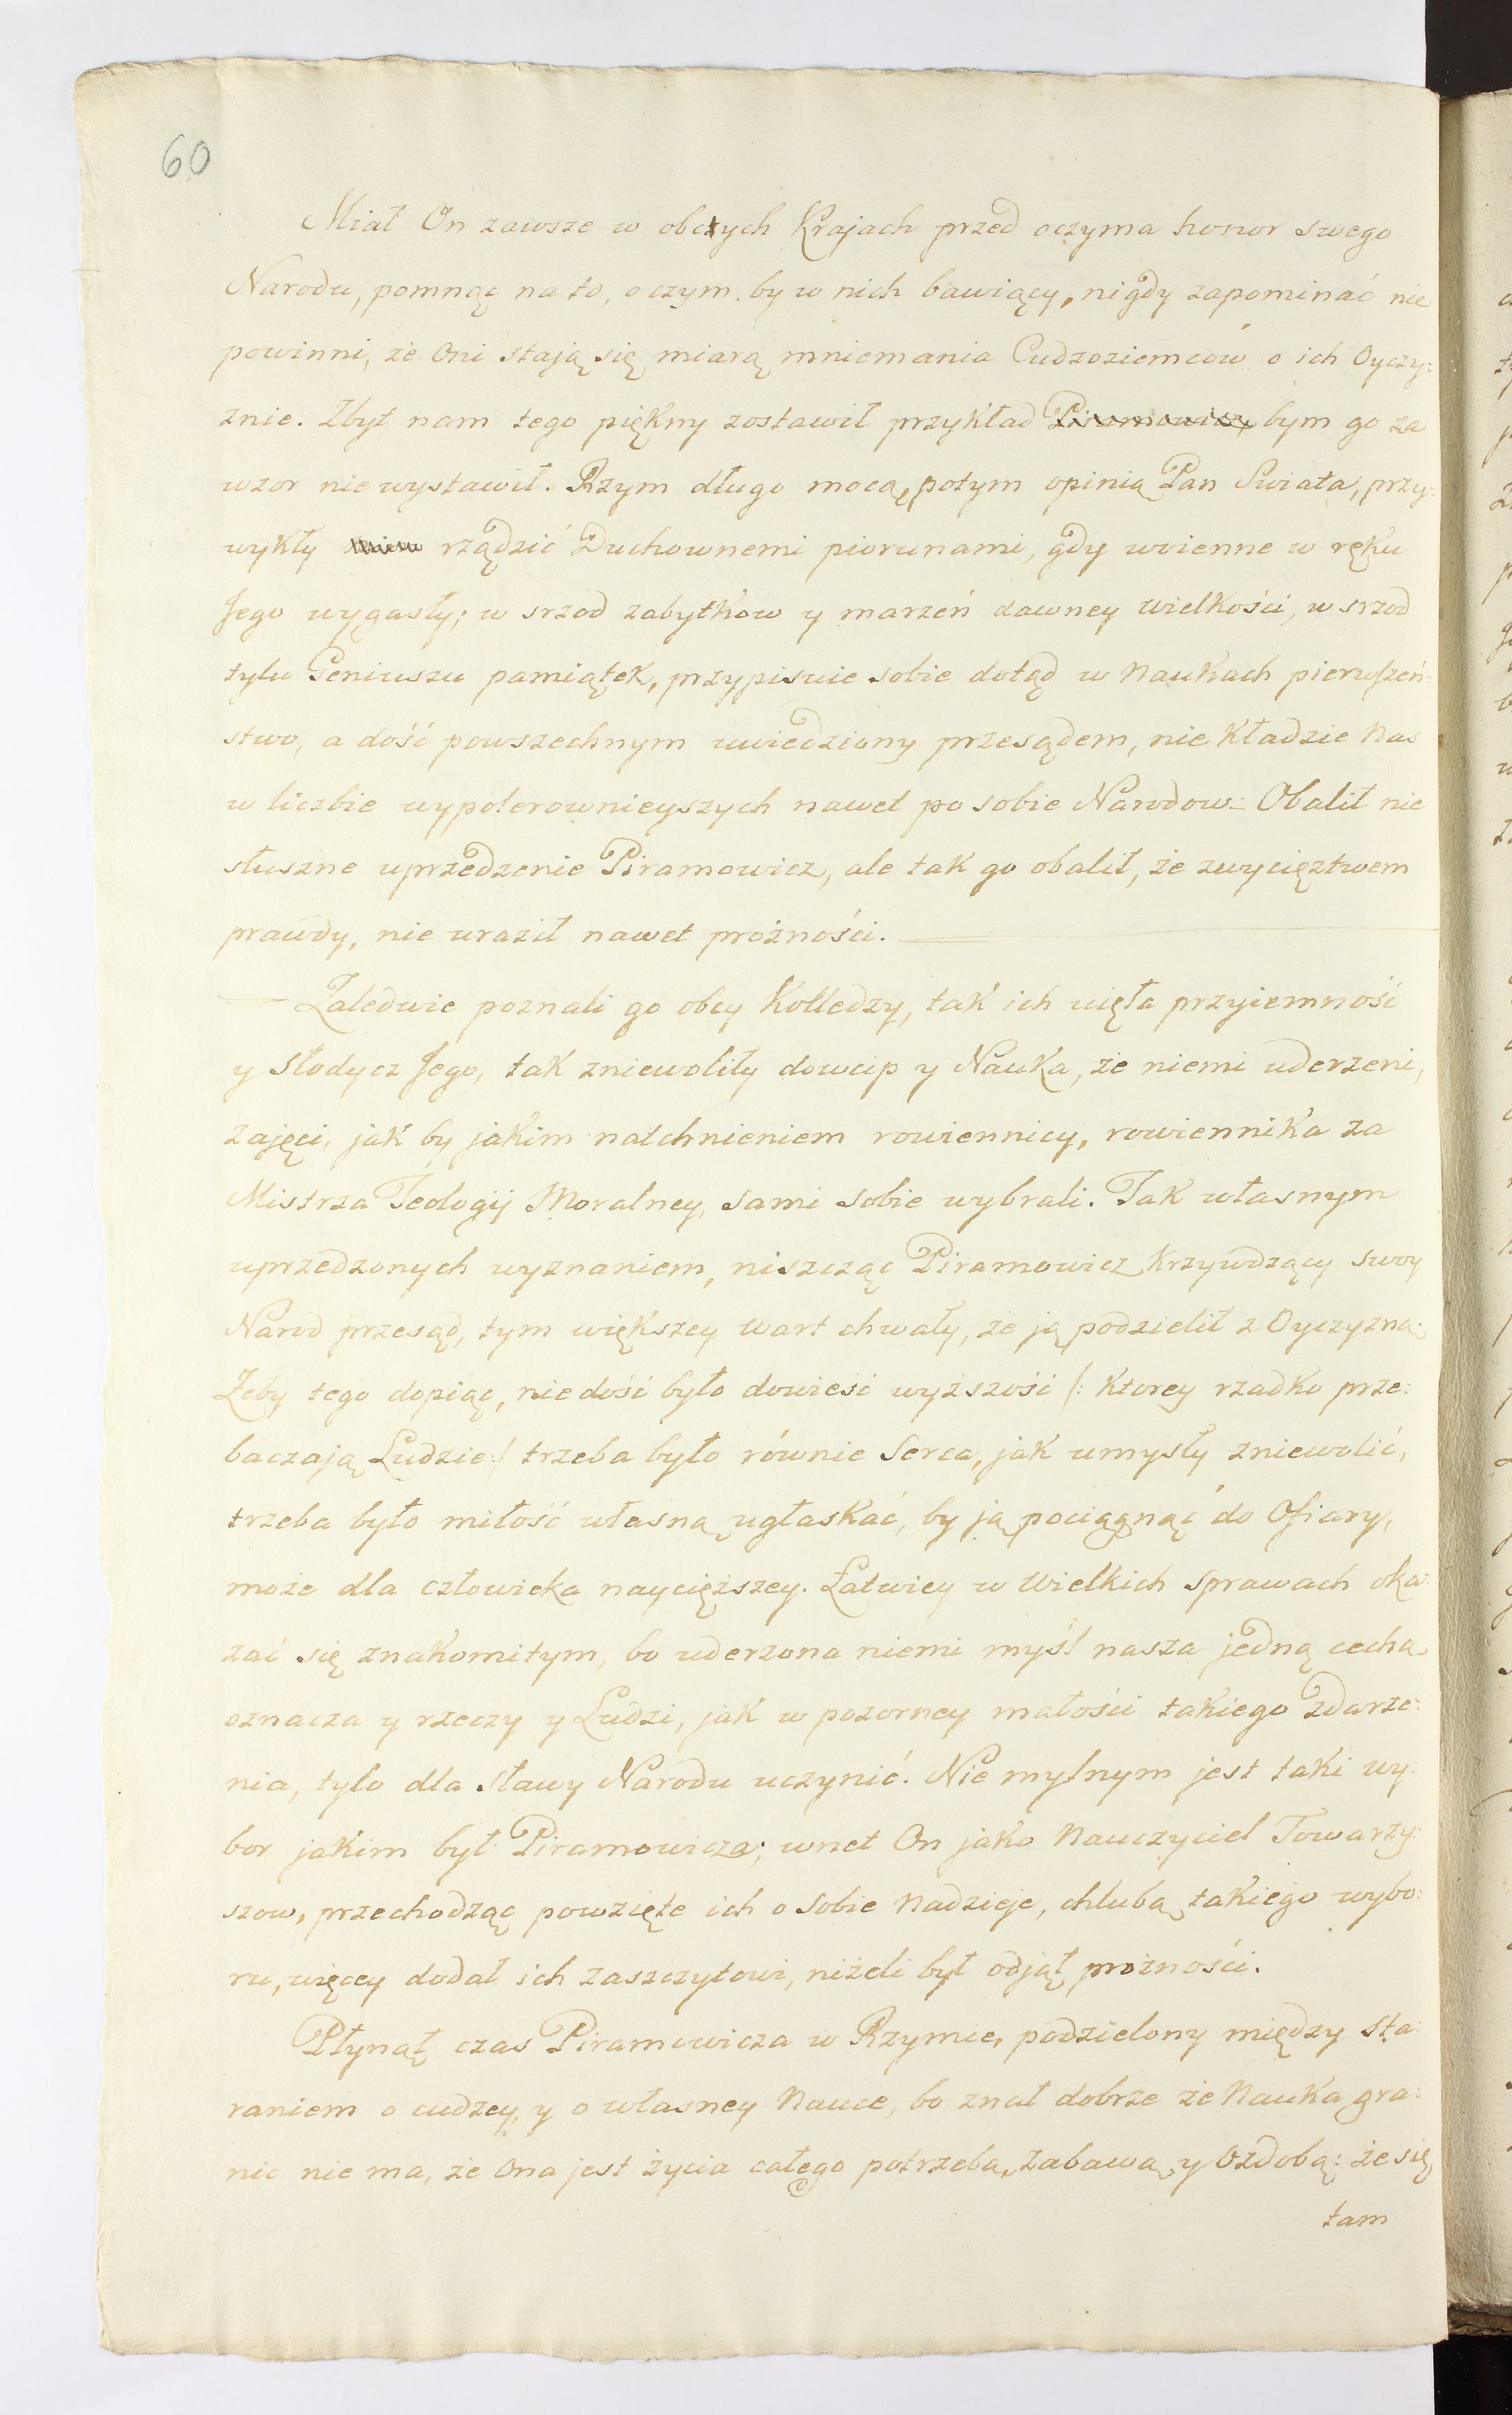 60
Miał On zawsze w obcych Krajach przed oczyma honor swego
Narodu, pomnąc na to, o czym by w nich bawiący, nigdy zapominać nie
powinni, że Oni stają się miarą mniemania Cudzoziemców o ich Oyczy:
znie. Zbyt nam tego piękny zostawił przykład Piramowicz, bym go za
wzor nie wystawił. Rzym długo mocą, potym opinią Pan Swiata, przy:
wykły rządzić Duchownemi piorunami, gdy wojenne w ręku
Jego wygasły; w srzod zabytkow y marzeń dawney wielkości, w srzod
tylu Geniuszu pamiątek, przypisuie sobie dotąd w Naukach pierwszeń:
stwo, a dość powszechnym uwiedziony przesądem, nie kładzie Nas
w liczbie wypolerownieyszych nawet po sobie Narodow. Obalił nie
słuszne uprzedzenie Piramowicz, ale tak go obalił, że zwycięztwem
prawdy, nie uraził nawet prożności.
Zaledwie poznali go obcy Kolledzy, tak ich ujęła przyiemność
y Słodycz Jego, tak zniewoliły dowcip y Nauka, że niemi uderzeni,
zajęci, jak by jakim natchnieniem rowiennicy, rowiennika za
Mistrza Teologij Moralney, sami sobie wybrali. Tak własnym
uprzedzonych wyznaniem, niszcząc Piramowicz krzywdzący swoy
Narod przesąd, tym większey wart chwały, że ją podzielił z Oyczyzną.
Żeby tego dopiąc, nie dość było dowieść wyższość /: ktorey rzadko prze:
baczają Ludzie :/ trzeba było równie Serca, jak umysły zniewolić,
trzeba było miłość własną ugłaskać, by ją pociągnąć do Ofiary,
może dla człowieka naycięższey. Łatwiey w Wielkich sprawach oka:
zać się znakomitym, bo uderzona niemi myśl nasza jedną cechą
oznacza y rzeczy y Ludzi, jak w pozorney małości takiego zdarze:
nia, tylo dla sławy Narodu uczynić. Nie mylnym jest taki wy:
bor jakim był Piramowicza; wnet On jako Nauczyciel Towarzy:
szow, przechodząc powzięte ich o sobie Nadzieje, chlubą takiego wybo:
ru, więcey dodał ich zaszczytowi, niżeli był odjął prożności.
Płynął czas Piramowicza w Rzymie, podzielony między sta:
raniem o cudzey, y o własney Nauce, bo znał dobrze że Nauka gra:
nic nie ma, że Ona jest życia całego potrzebą, zabawą, y Ozdobą: że się
tam